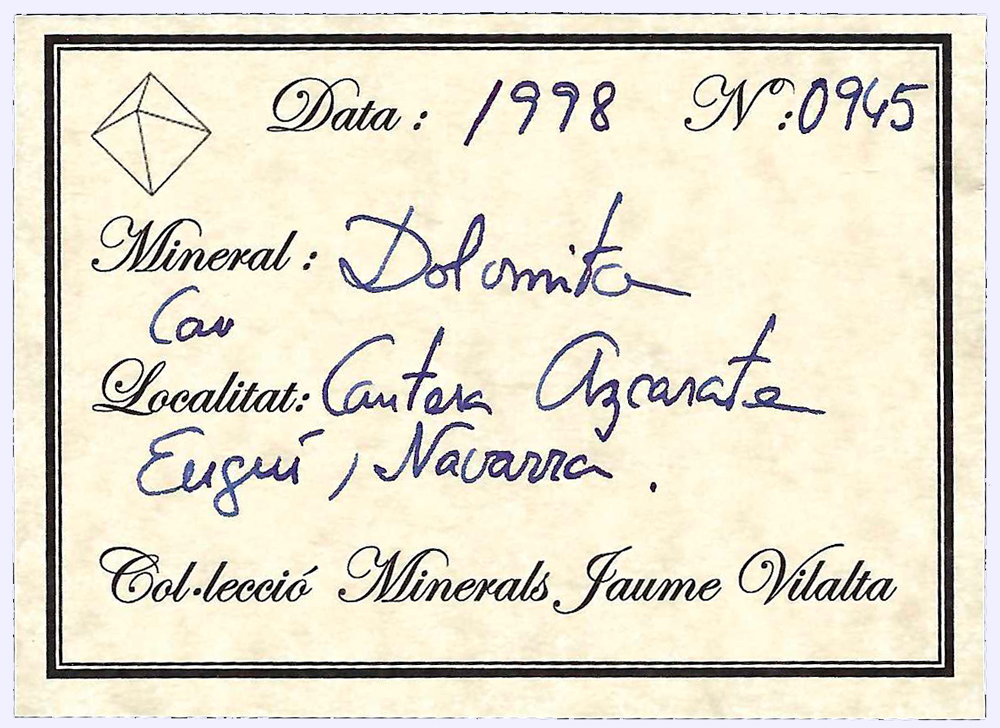 Data : 1998 Nº: 0945
Mineral : Dolomita
Localitat: Cantera Azcarate
Eugui, Navarra.
Col·lecció Minerals Jaume Vilalta